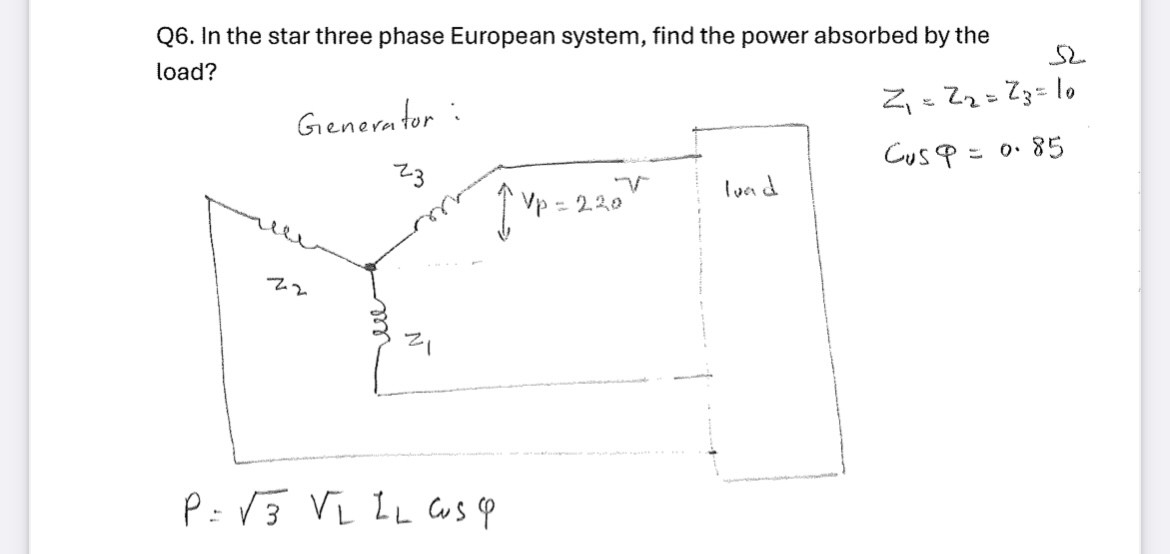 Q6. In the star three phase European system, find the power absorbed by the
load?
Generator :
Z₁ = Z₂ = Z₃ = 10 Ω
Cosφ = 0.85
Z3
Vp = 220 V
load
Z2
Z1
P = √3 VL IL Cosφ